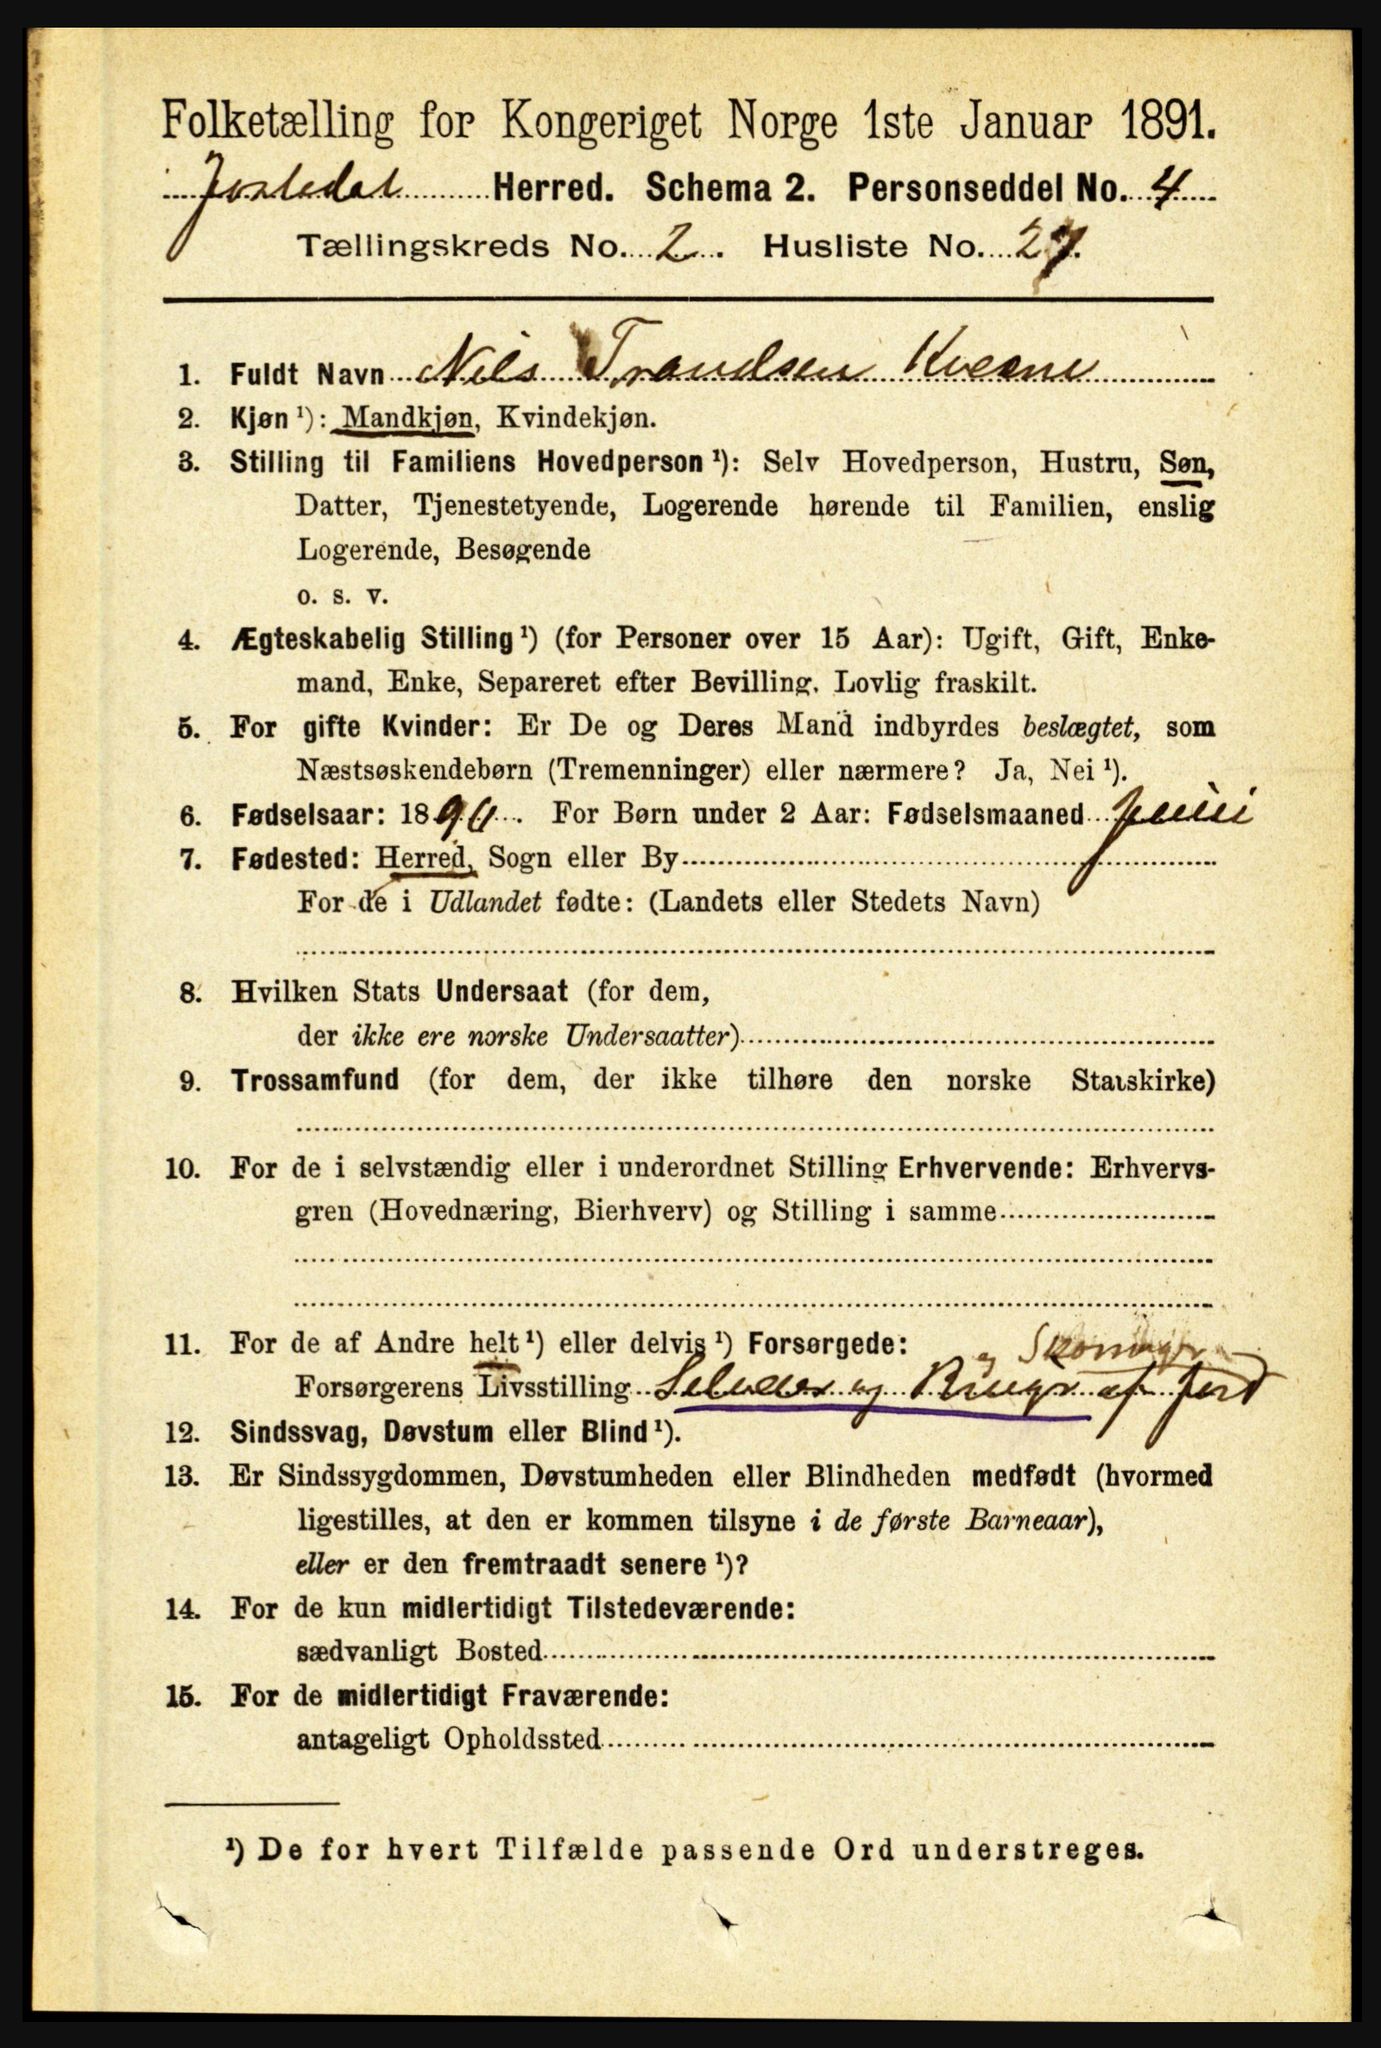 Folketælling for Kongeriget Norge 1ste Januar 1891.
Jostedal Herred. Schema 2. Personseddel No. 4
Tællingskreds No. 2. Husliste No. 27.
1. Fuldt Navn Nils Trondsen Kvesne
2. Kjøn ¹): Mandkjøn, Kvindekjøn.
3. Stilling til Familiens Hovedperson ¹): Selv Hovedperson, Hustru, Søn,
Datter, Tjenestetyende, Logerende hørende til Familien, enslig
Logerende, Besøgende
o. s. v.
4. Ægteskabelig Stilling ¹) (for Personer over 15 Aar): Ugift, Gift, Enke-
mand, Enke, Separeret efter Bevilling. Lovlig fraskilt.
5. For gifte Kvinder: Er De og Deres Mand indbyrdes beslægtet, som
Næstsøskendebørn (Tremenninger) eller nærmere? Ja, Nei ¹).
6. Fødselsaar: 1890. For Børn under 2 Aar: Fødselsmaaned Juni
7. Fødested: Herred, Sogn eller By
For de i Udlandet fødte: (Landets eller Stedets Navn)
8. Hvilken Stats Undersaat (for dem,
der ikke ere norske Undersaatter)
9. Trossamfund (for dem, der ikke tilhøre den norske Statskirke)
10. For de i selvstændig eller i underordnet Stilling Erhvervende: Erhvervs-
gren (Hovednæring, Bierhverv) og Stilling i samme
11. For de af Andre helt ¹) eller delvis ¹) Forsørgede:
og
Forsørgerens Livsstilling Seleder og Bruger af Jord
12. Sindssvag, Døvstum eller Blind ¹).
13. Er Sindssygdommen, Døvstumheden eller Blindheden medfødt (hvormed
ligestilles, at den er kommen tilsyne i de første Barneaar),
eller er den fremtraadt senere ¹)?
14. For de kun midlertidigt Tilstedeværende:
sædvanligt Bosted
15. For de midlertidigt Fraværende:
antageligt Opholdssted
¹) De for hvert Tilfælde passende Ord understreges.